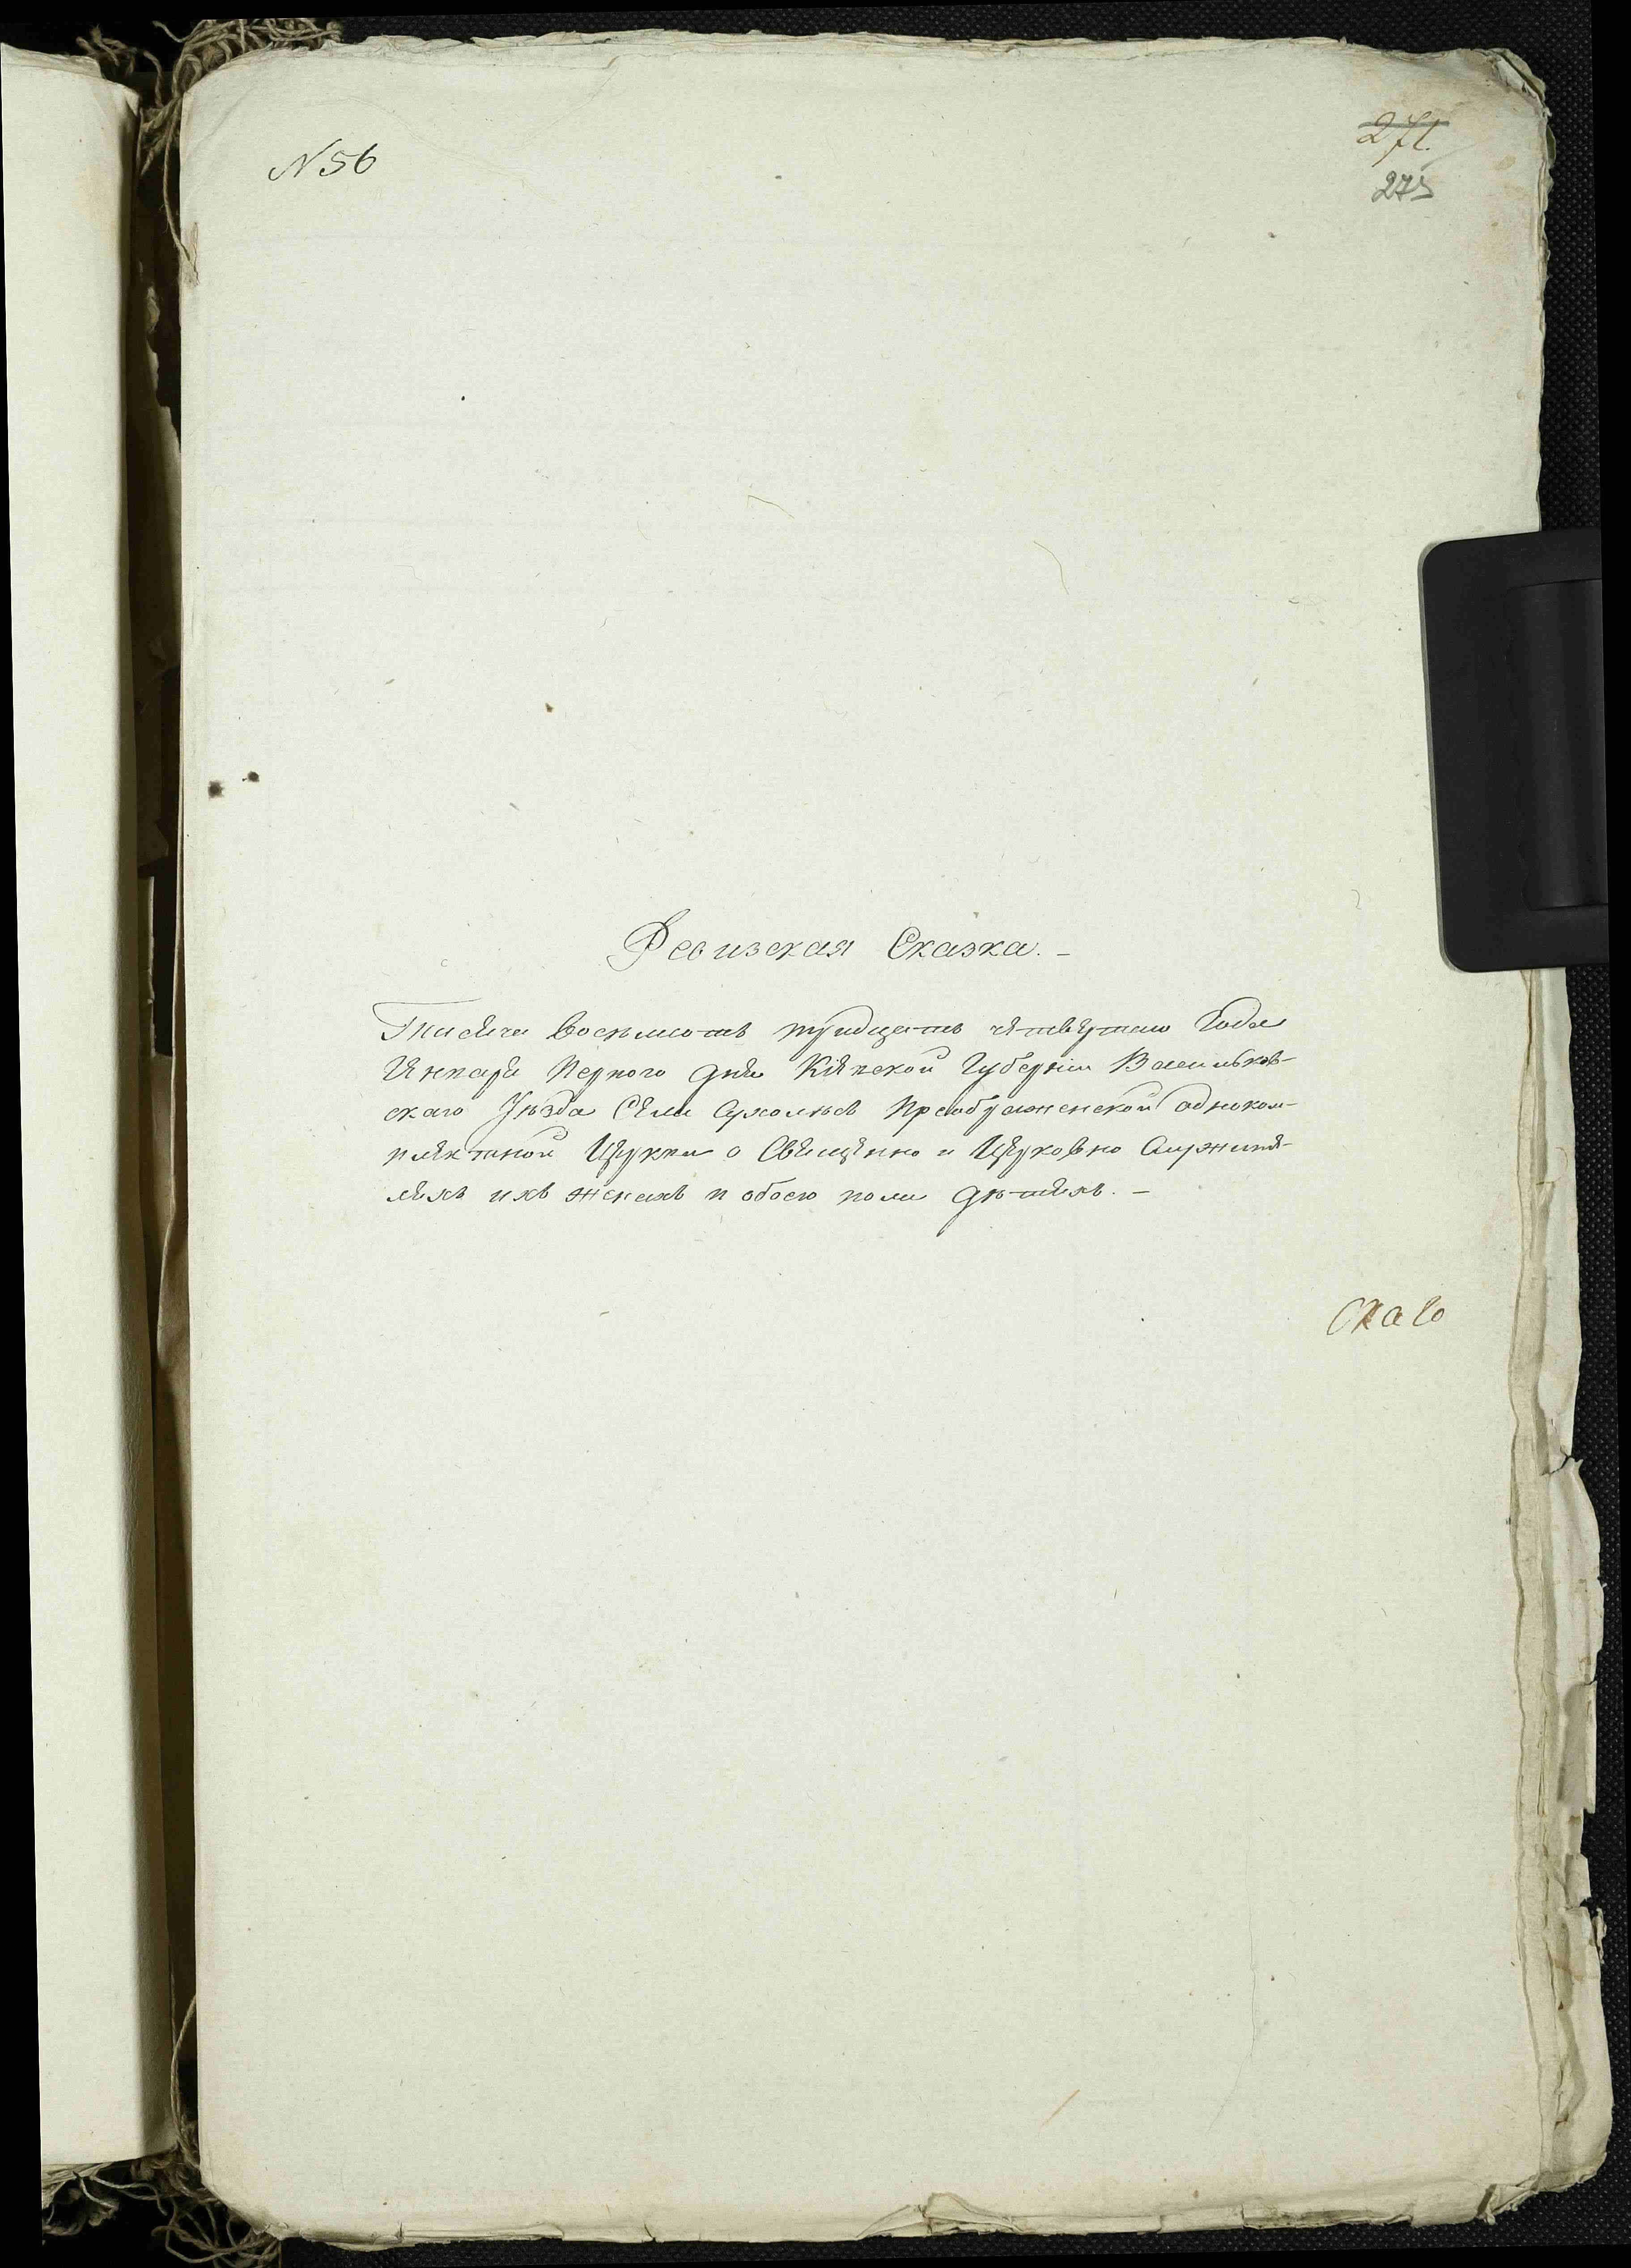 N 56
271.
275
Ревизская Сказка. -
Тисяча восемьсотъ тридцать четвертаго Года
Января Перваго дня Кіевской Губерніи Васильков-
скаго Уѣзда Села Преображенской одноком-
плектной Церкви о Священно и Церковно Служите-
ляхъ ихъ женахъ и обоего пола дѣтяхъ. -
скаго